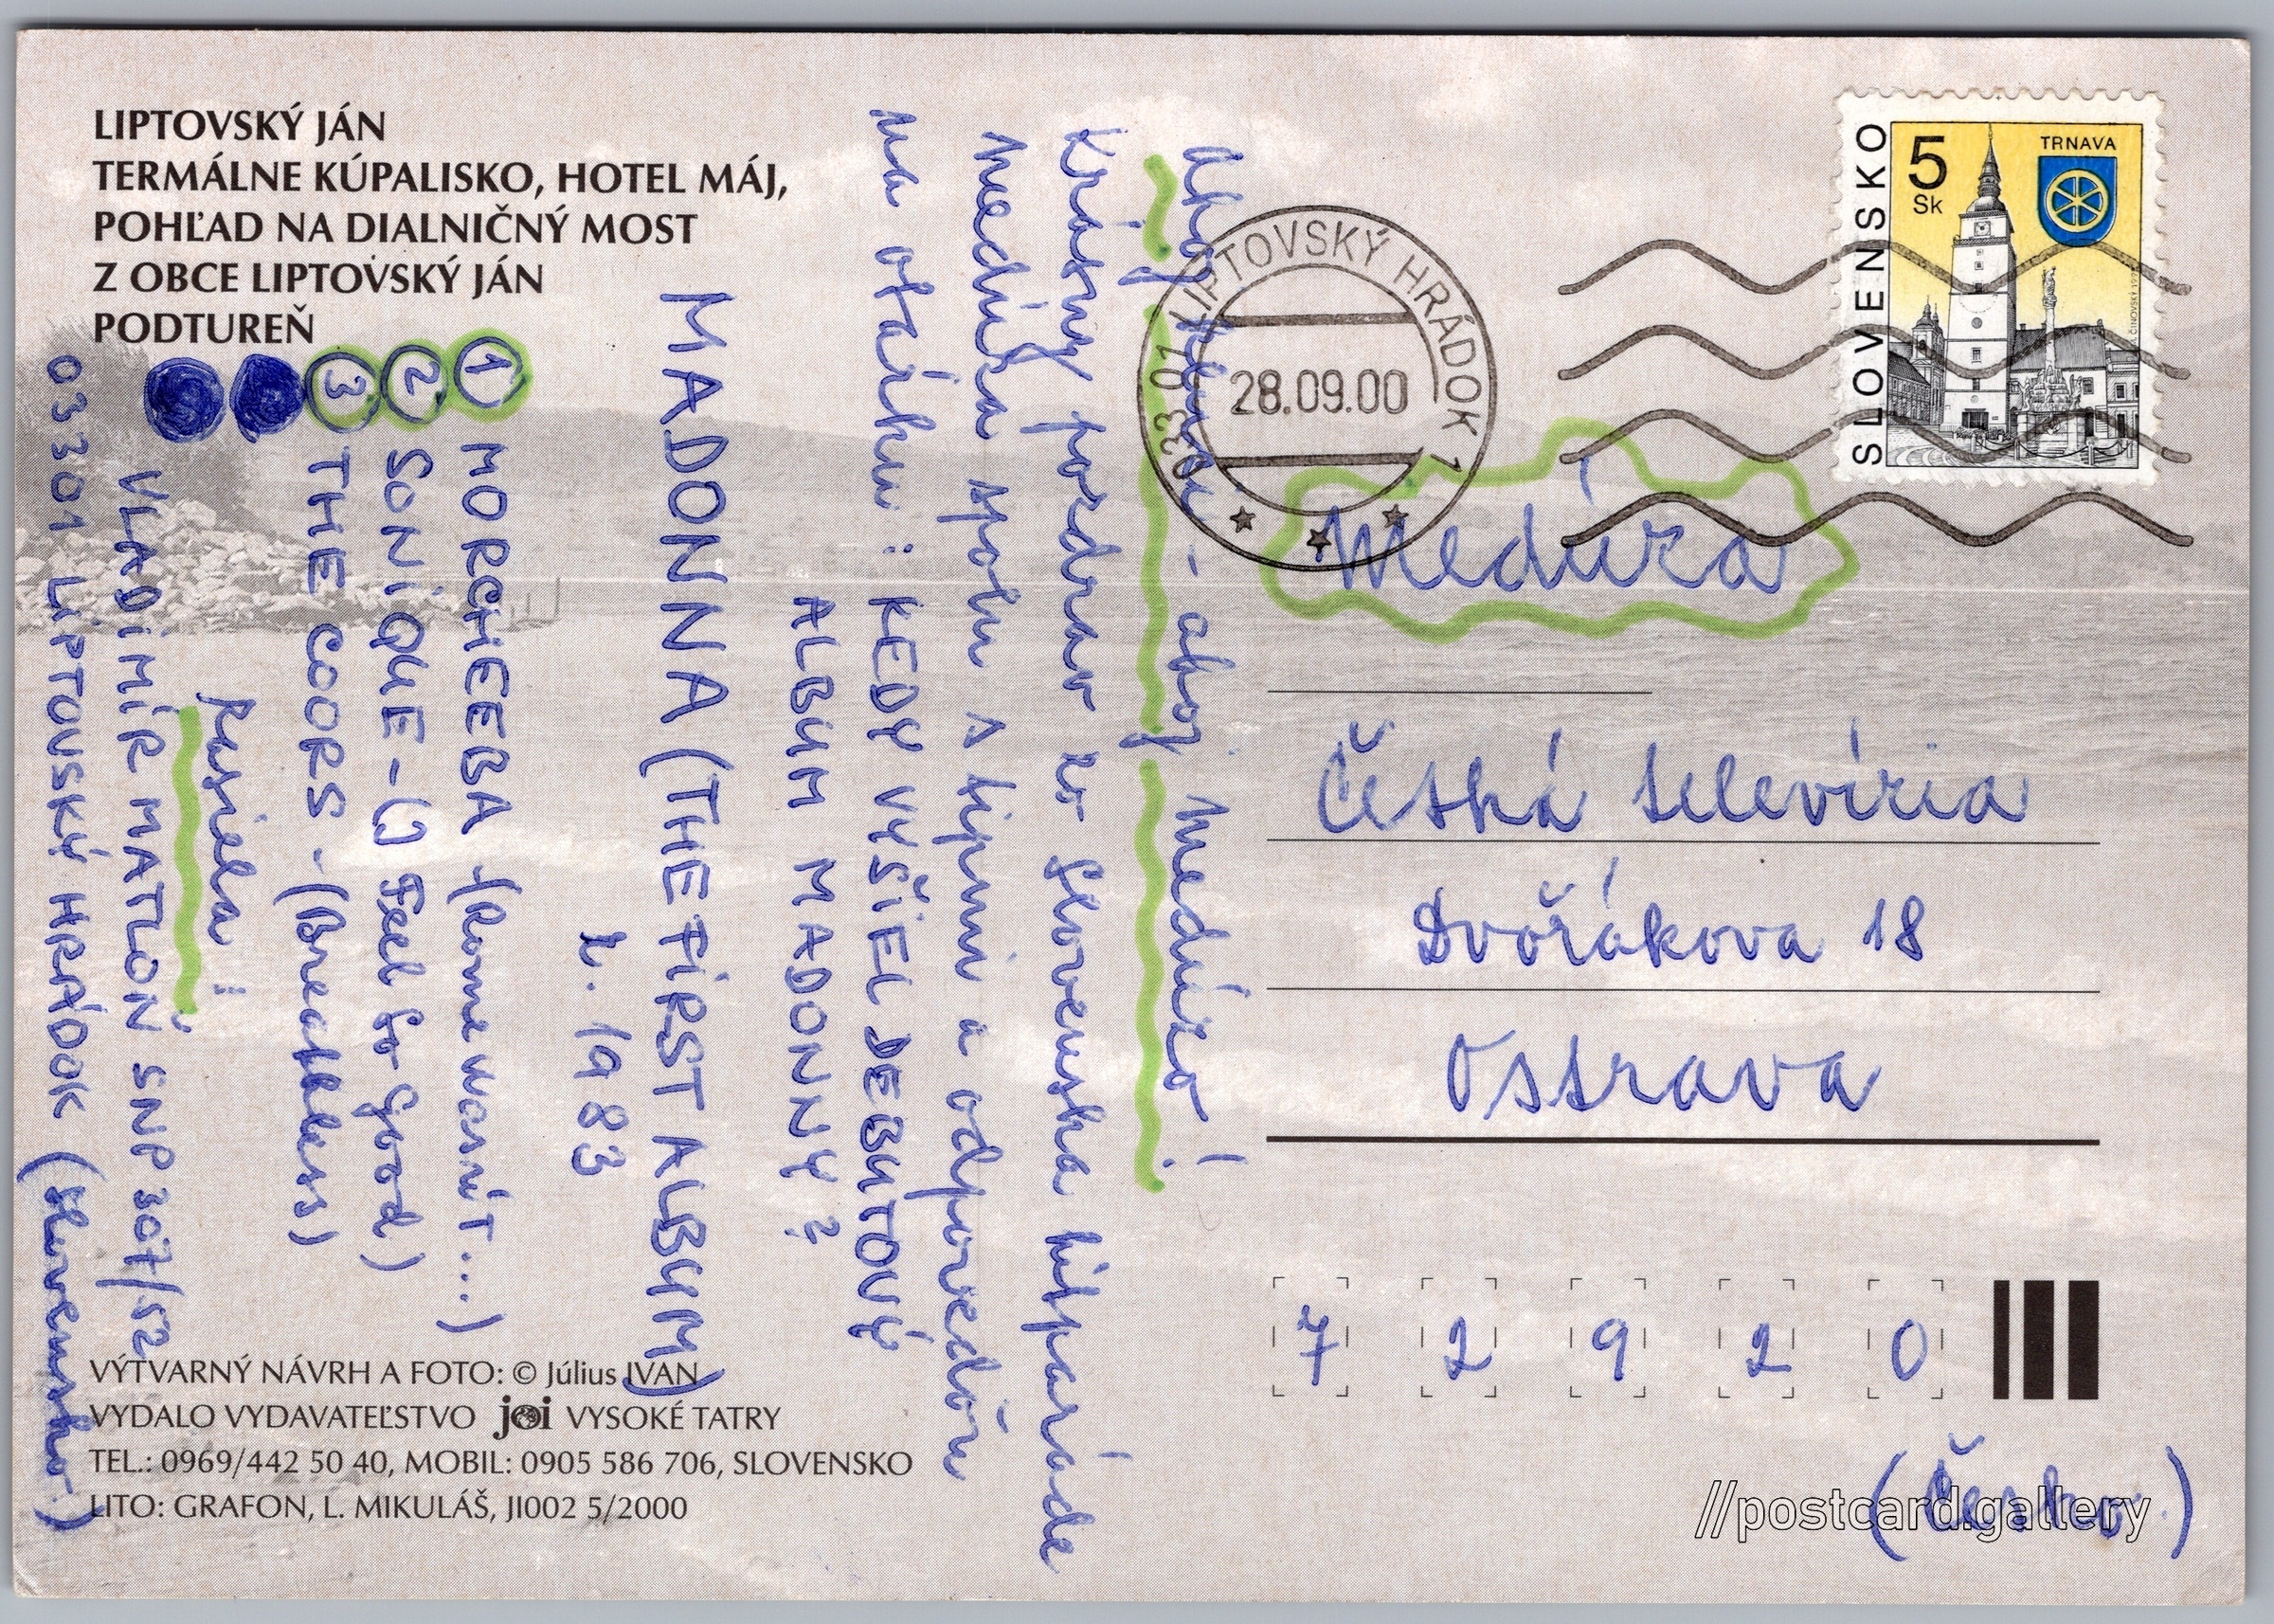 LIPTOVSKÝ JÁN
TERMÁLNE KÚPALISKO, HOTEL MÁJ,
POHĽAD NA DIALNIČNÝ MOST
Z OBCE LIPTOVSKÝ JÁN
PODTUREŇ
Ahoj - ahoj Medúzo!
Krásny pozdrav zo Slovenska hitparáde
Medúza spolu s tipmi a odpoveďou
na otázku: KEDY VYŠIEL DEBUTOVÝ
ALBUM MADONNY?
MADONNA (THE FIRST ALBUM)
r. 1983
1 MORCHEEBA - (Rome wasnt...)
2 SONIQUE - () Feel so Good)
3 THE COORS - (Breathless)
VLADIMÍR MATLOŇ SNP 307/52
03301 LIPTOVSKÝ HRÁDOK (Slovensko)
VÝTVARNÝ NÁVRH A FOTO: © Július IVAN
VYDALO VYDAVATEĽSTVO joi VYSOKÉ TATRY
TEL.: 0969/442 50 40, MOBIL: 0905 586 706, SLOVENSKO
LITO: GRAFON, L. MIKULÁŠ, JI002 5/2000
033 01 LIPTOVSKÝ HRÁDOK 1
28.09.00
SLOVENSKO
5
Sk
TRNAVA
Medúza
Česká televízia
Dvořákova 18
Ostrava
7 2 9 2 0
(Česko)
//postcard.gallery